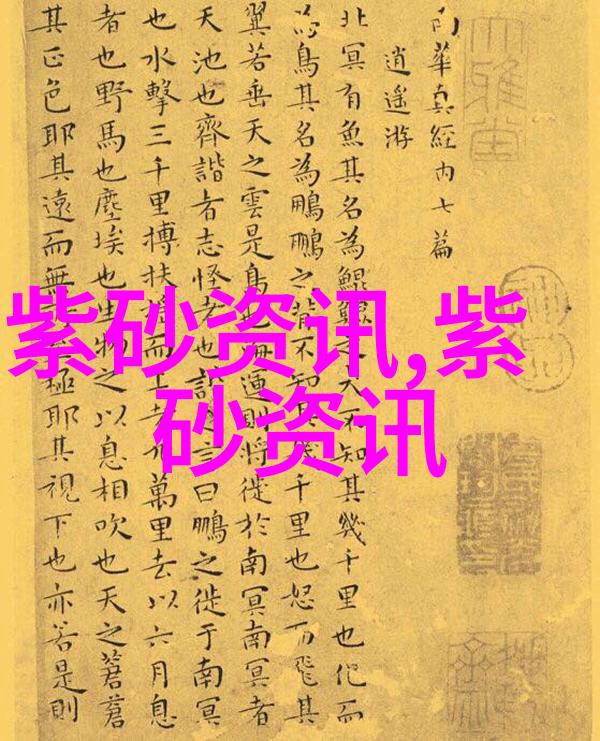 南華真經内七篇
逍遥游
北冥有魚其名為鯤鯤之大不知其幾千里也化而
為鳥其名為鵬鵬之背不知其幾千里也怒而飛其
翼若垂天之雲是鳥也海運則將徙於南冥南冥者
天池也齊諧者志怪者也諧之言曰鵬之徙于南冥
也水擊三千里搏扶搖而上者九萬里去以六月息
者也野馬也塵埃也生物之以息相吹也天之蒼蒼
其正色耶其遠而無所至極耶其視下也亦若是則
紫砂资讯,紫
砂资讯